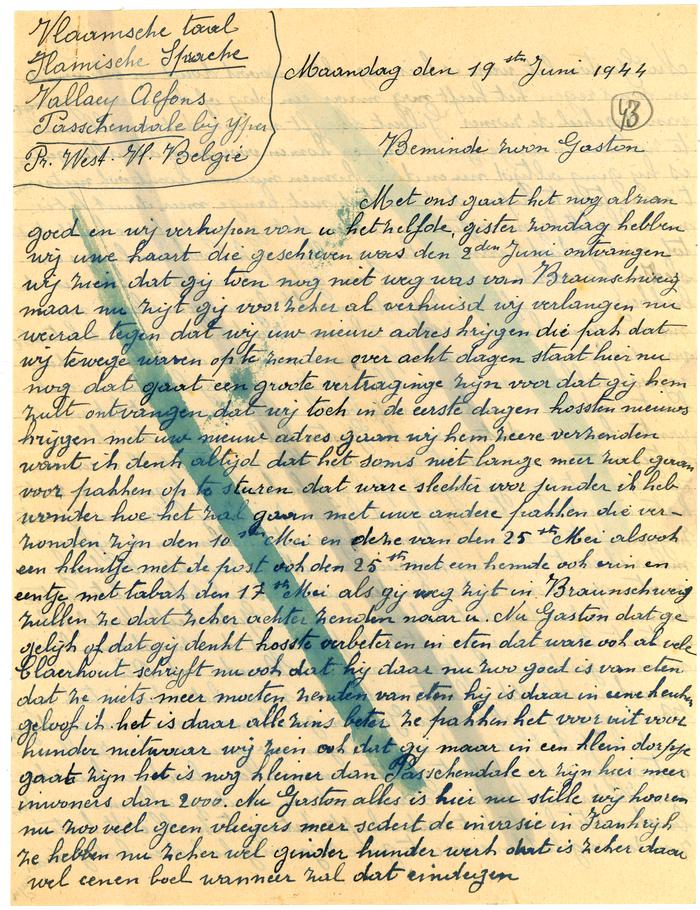 Vlaamsche taal
Flamische Sprache
Vallaey Alfons
Passchendale bij Yper
Pr. West. Vl. België
Maandag den 19 ste Juni 1944
43
Beminde zoon Gaston
Met ons gaat het nog alzan
goed en wij verhopen van u hetzelfde, gister zondag hebben
wij uwe kaart die geschreven was den 2den Juni ontvangen
wij zien dat gij toen nog niet weg was van Braunschweig
maar nu zijt gij voorzeker al verhuisd wij verlangen nu
weeral tegen dat wij uw nieuw adres krijgen die pak dat
wij tewege waren op te zenden over acht dagen staat hier nu
nog dat gaat een groote vertraginge zijn voor dat gij hem
zult ontvangen, dat wij toch in de eerste dagen kosten nieuws
krijgen met uw nieuw adres gaan wij hem zeere verzenden
want ik denk altijd dat het soms niet lange meer zal gaan
voor pakken op te sturen dat ware slechter voor junder ik heb
wonder hoe het zal gaan met uwe andere pakken die ver-
zonden zijn den 10 sten Mei en deze van den 25 ste Mei alsook
een kleintje met de post ook den 25 ste met een hemde ook erin en
eentje met tabak den 17 ste Mei als gij weg zijt in Braunschweig
zullen ze dat zeker achter zenden naar u. Nu Gaston dat ge
gelijk of dat gij denkt kosste verbeteren in eten dat ware ook al vele
Claerhout schrijft nu ook dat hij daar nu zoo goed is van eten
dat ze niets meer moeten zenden van eten hij is daar in eene keuken
geloof ik het is daar alleszins beter ze pakken het voor uit voor
hunder metwaar wij zeen ook dat gij maar in een klein dorpje
gaat zijn het is nog kleiner dan Passchendale er zijn hier meer
inwoners dan 2000. Nu Gaston alles is hier nu stille wij hooren
nu zoo veel geen vliegers meer sedert de invasie in Frankrijk
ze hebben nu zeker wel ginder hunder werk dat is zeker daar
wel eenen boel wanneer zal dat eindigen